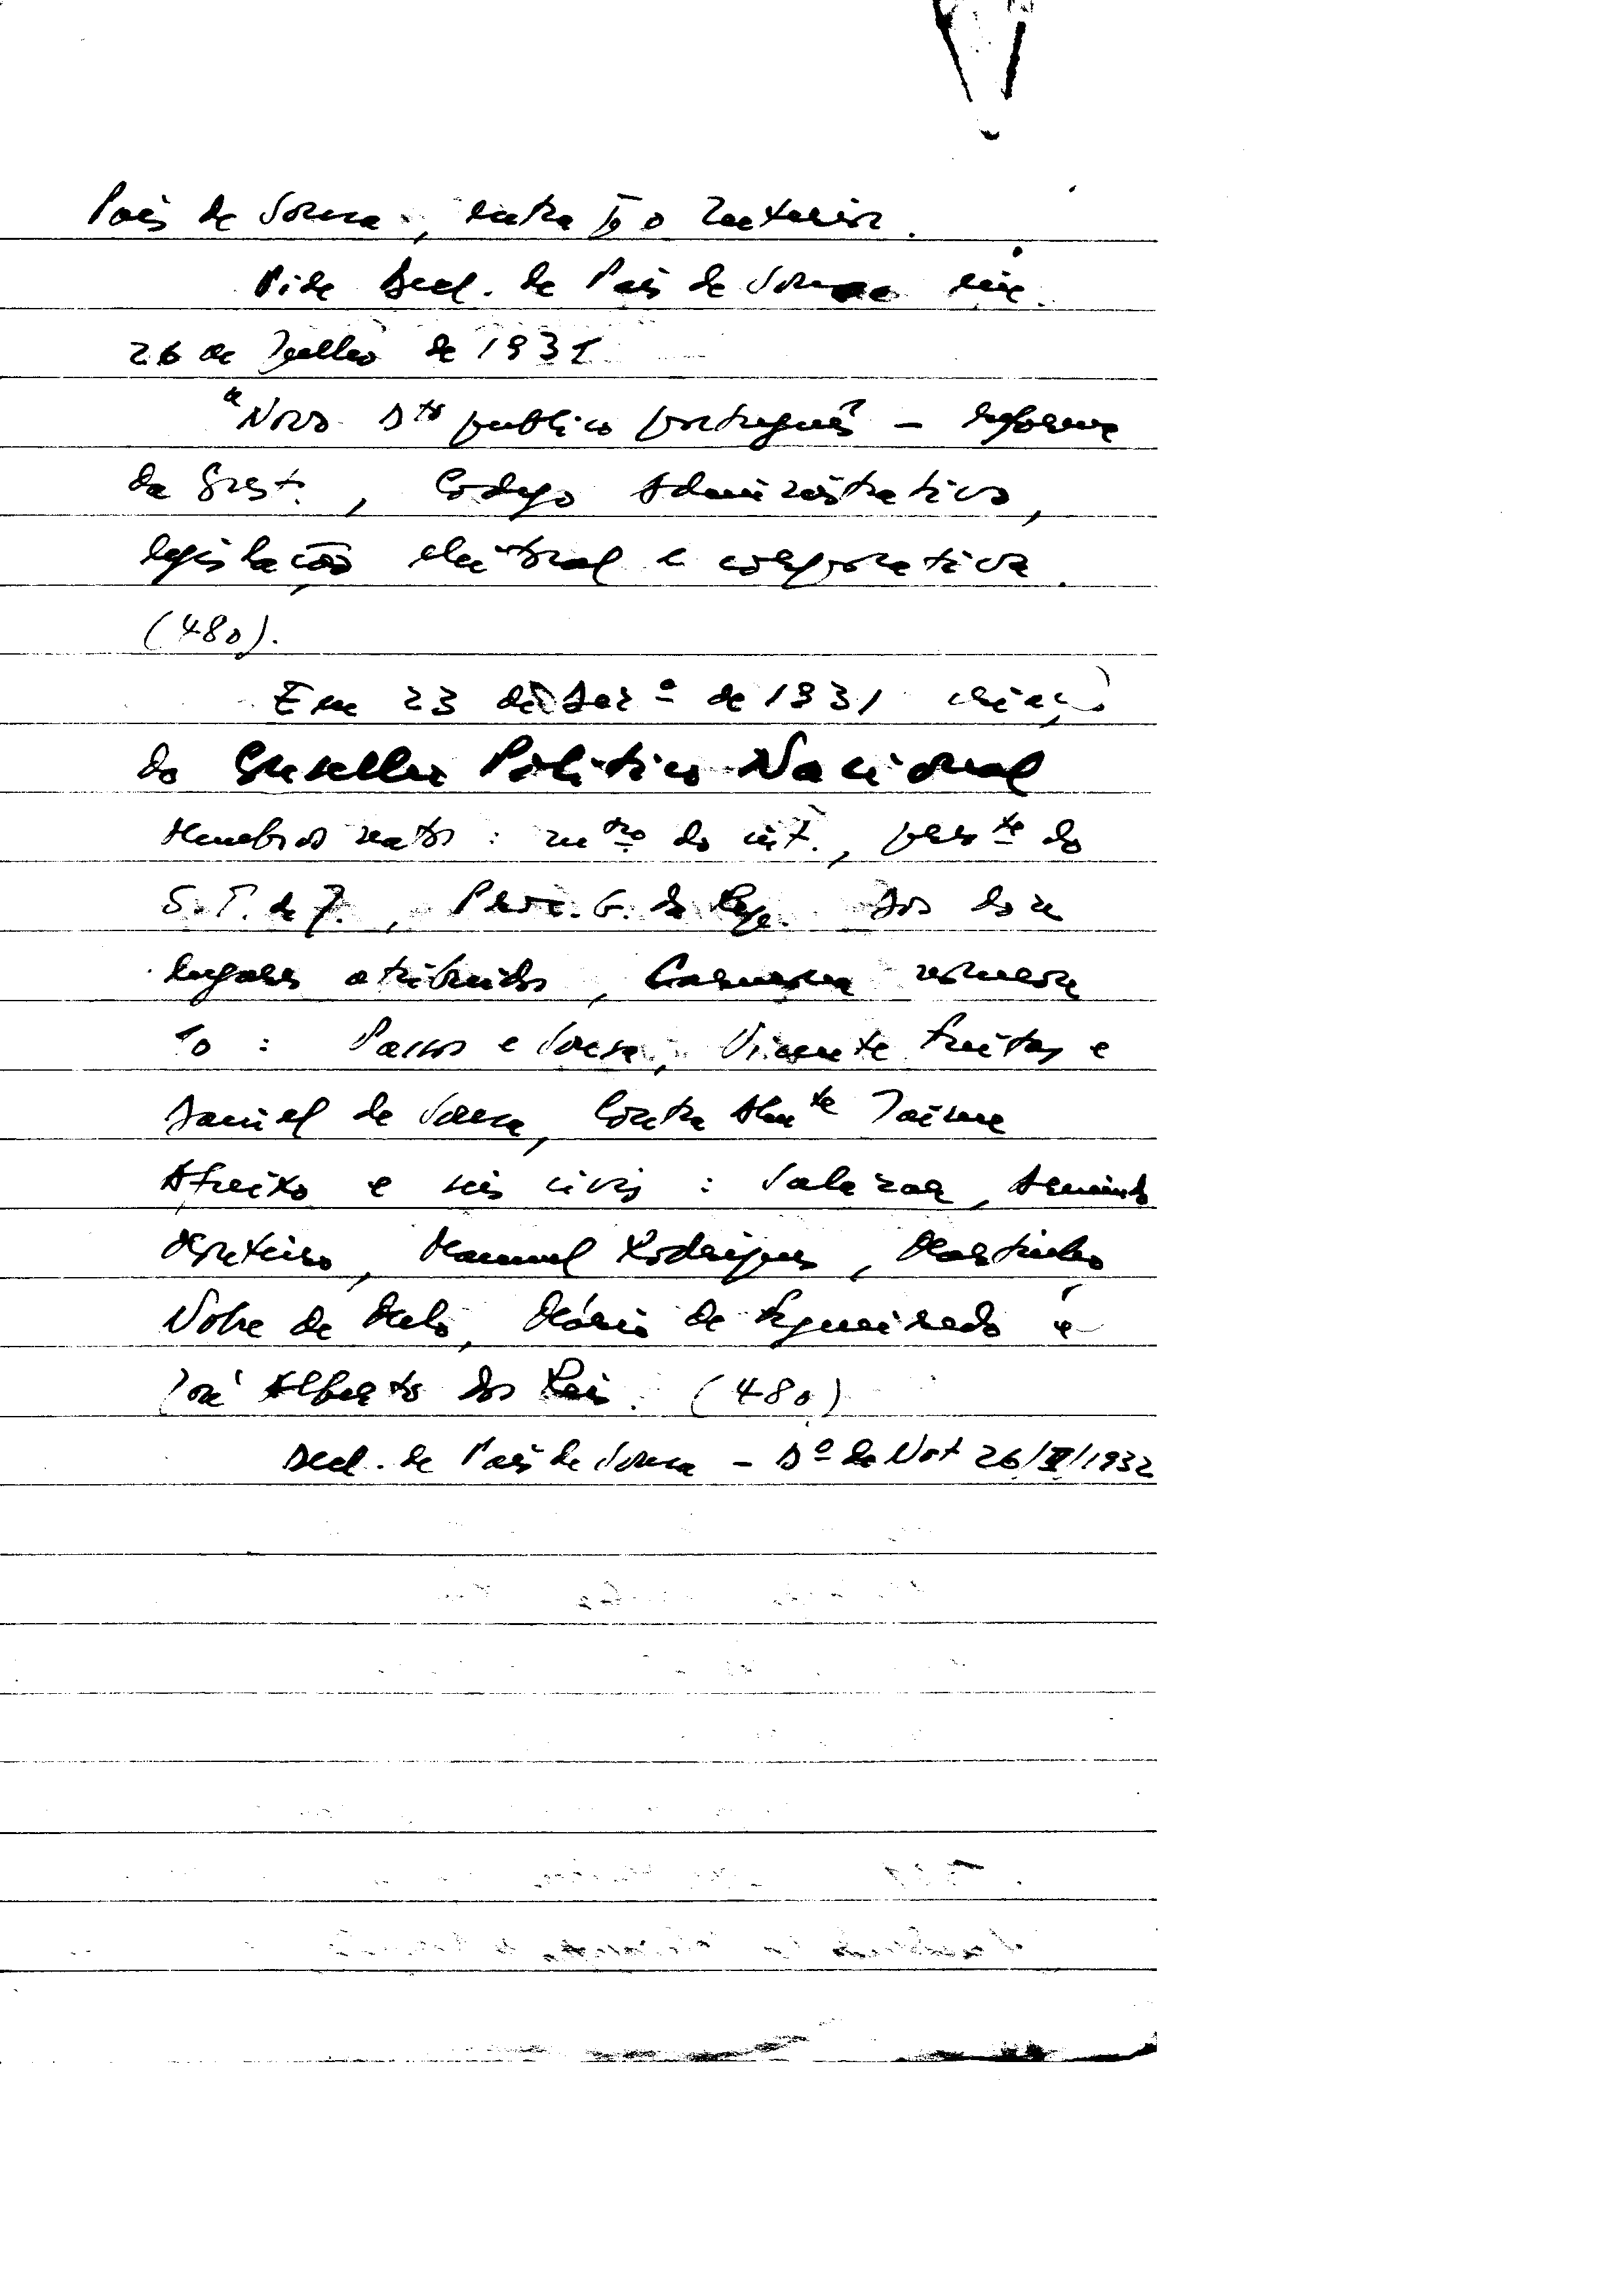 Pais de Sousa, entra p/ o Interior.
Vide Decl. de Pais de Sousa em
26 de Julho de 1931
"Novo Dto publico português – reforma
da Const., Codigo Administrativo,
legislação eleitoral e corporativa.
(480).
Em 23 de Dez.º de 1931 criação
do Conselho Politico Nacional
Membros natos: mtro do int., preste do
S.T. de J., Proc. G. da Rep. Dos doze
lugares atribuidos, Carmona nomeia
10: Passos e Sousa, Vicente Freitas e
Daniel de Sousa, Contra Almte Jaime
Afreixo e seis civis: Salazar, Armindo
Monteiro, Manuel Rodrigues, Martinho
Nobre de Melo, Mário de Figueiredo e
José Alberto dos Reis. (480)
Decl. de Pais de Sousa – Dº de Not 26/ /1932